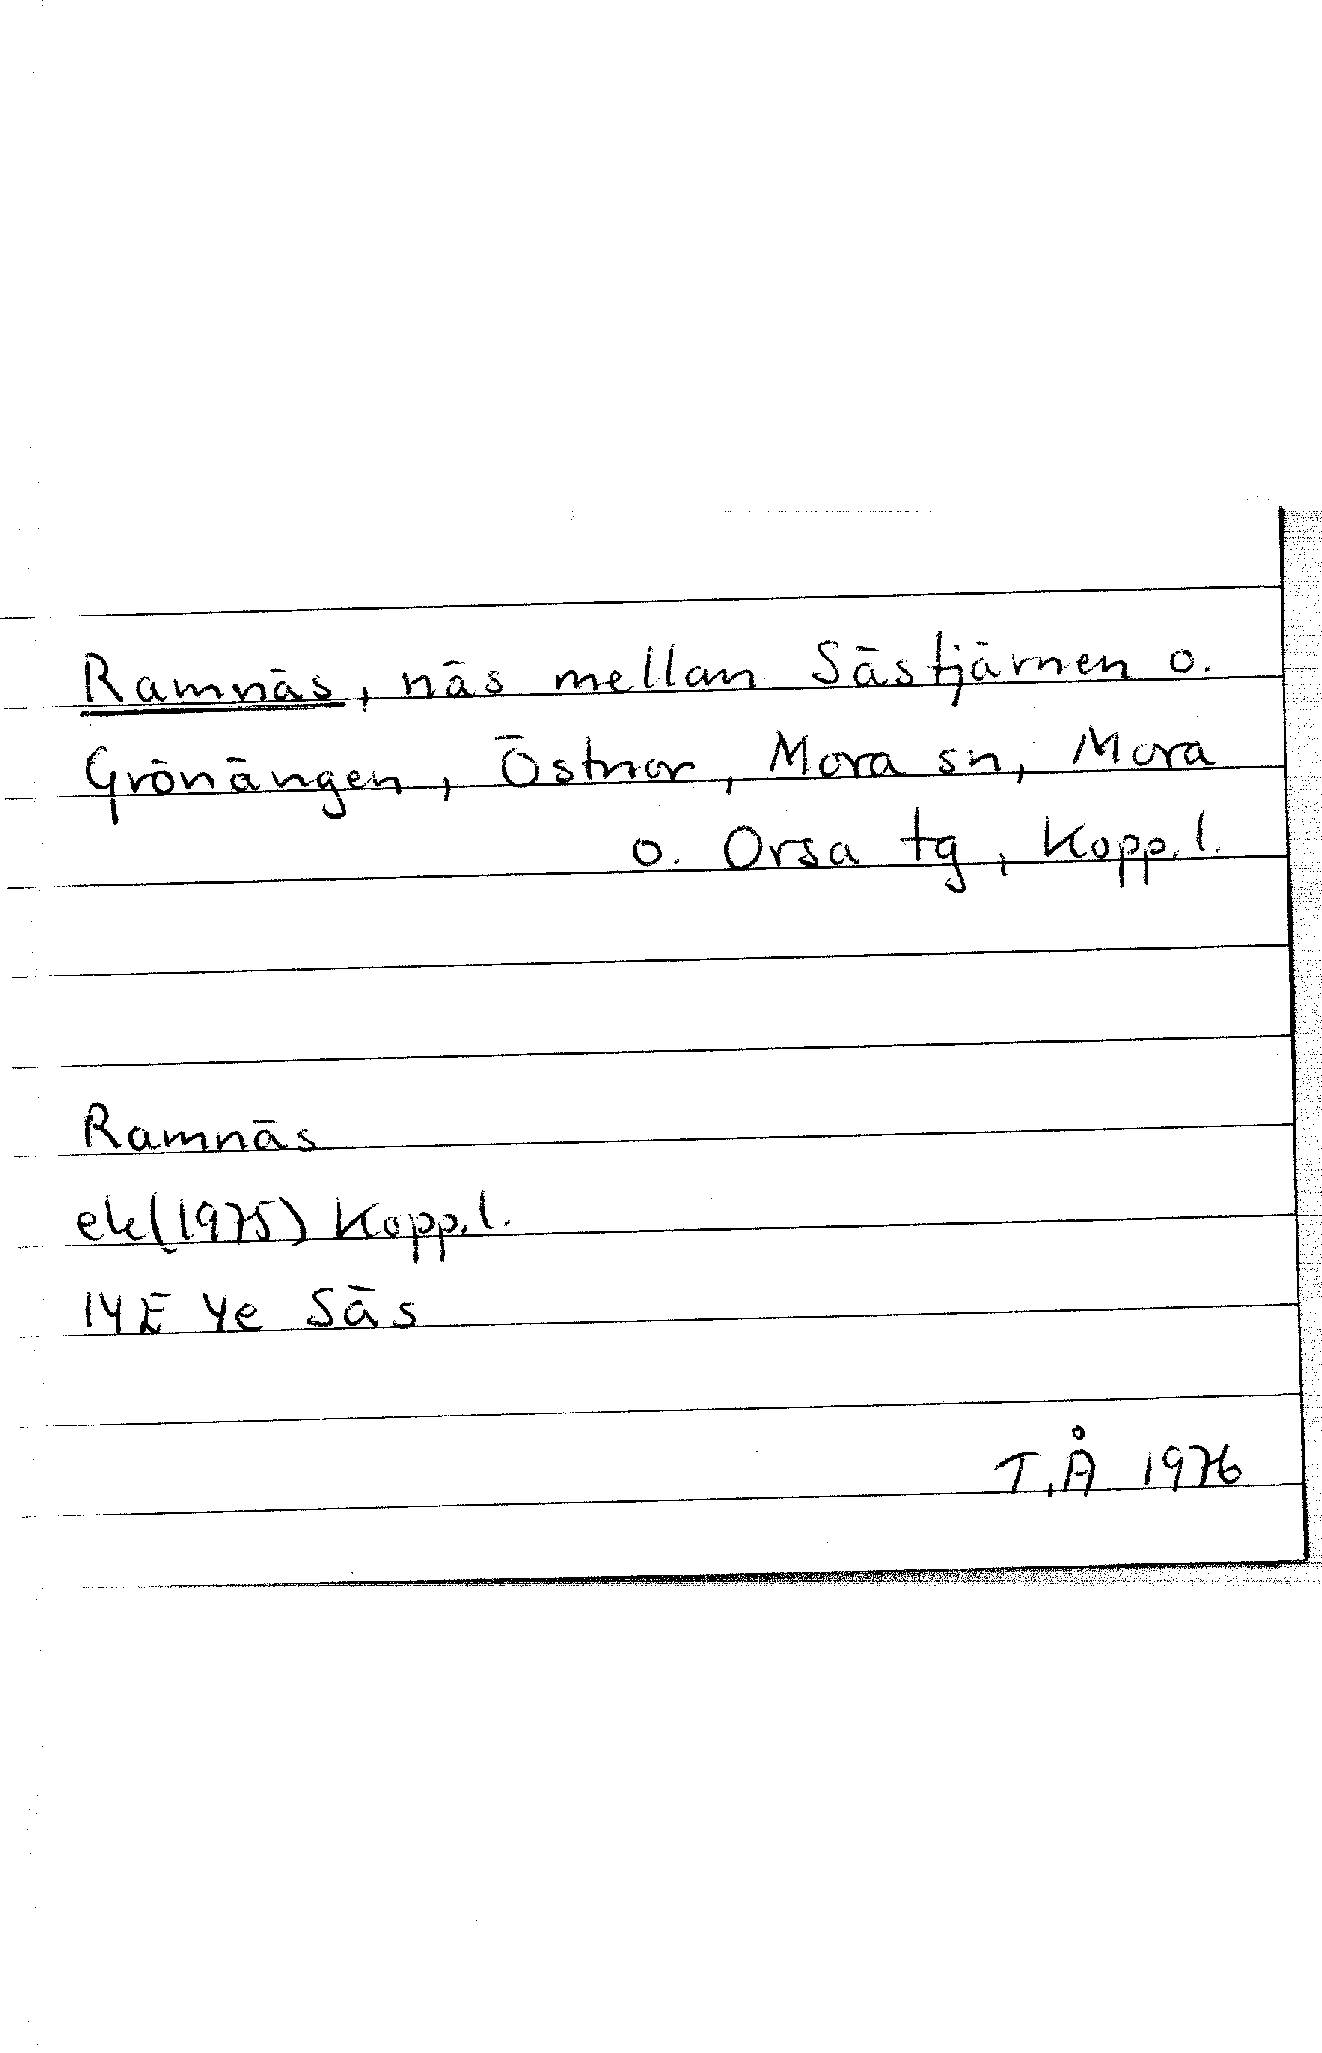 Ramnäs, näs mellan Sästjärnen o.
Grönängen, Östnor, Mora sn, Mora
o. Orsa tg, Kopp.l.
Ramnäs
ek(1975) Kopp.l.
14E 4e Säs
T.Å 1976